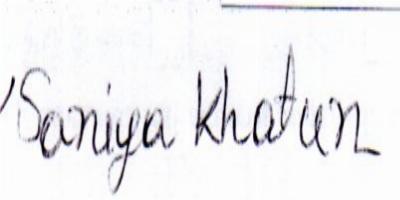 Saniya Khatun